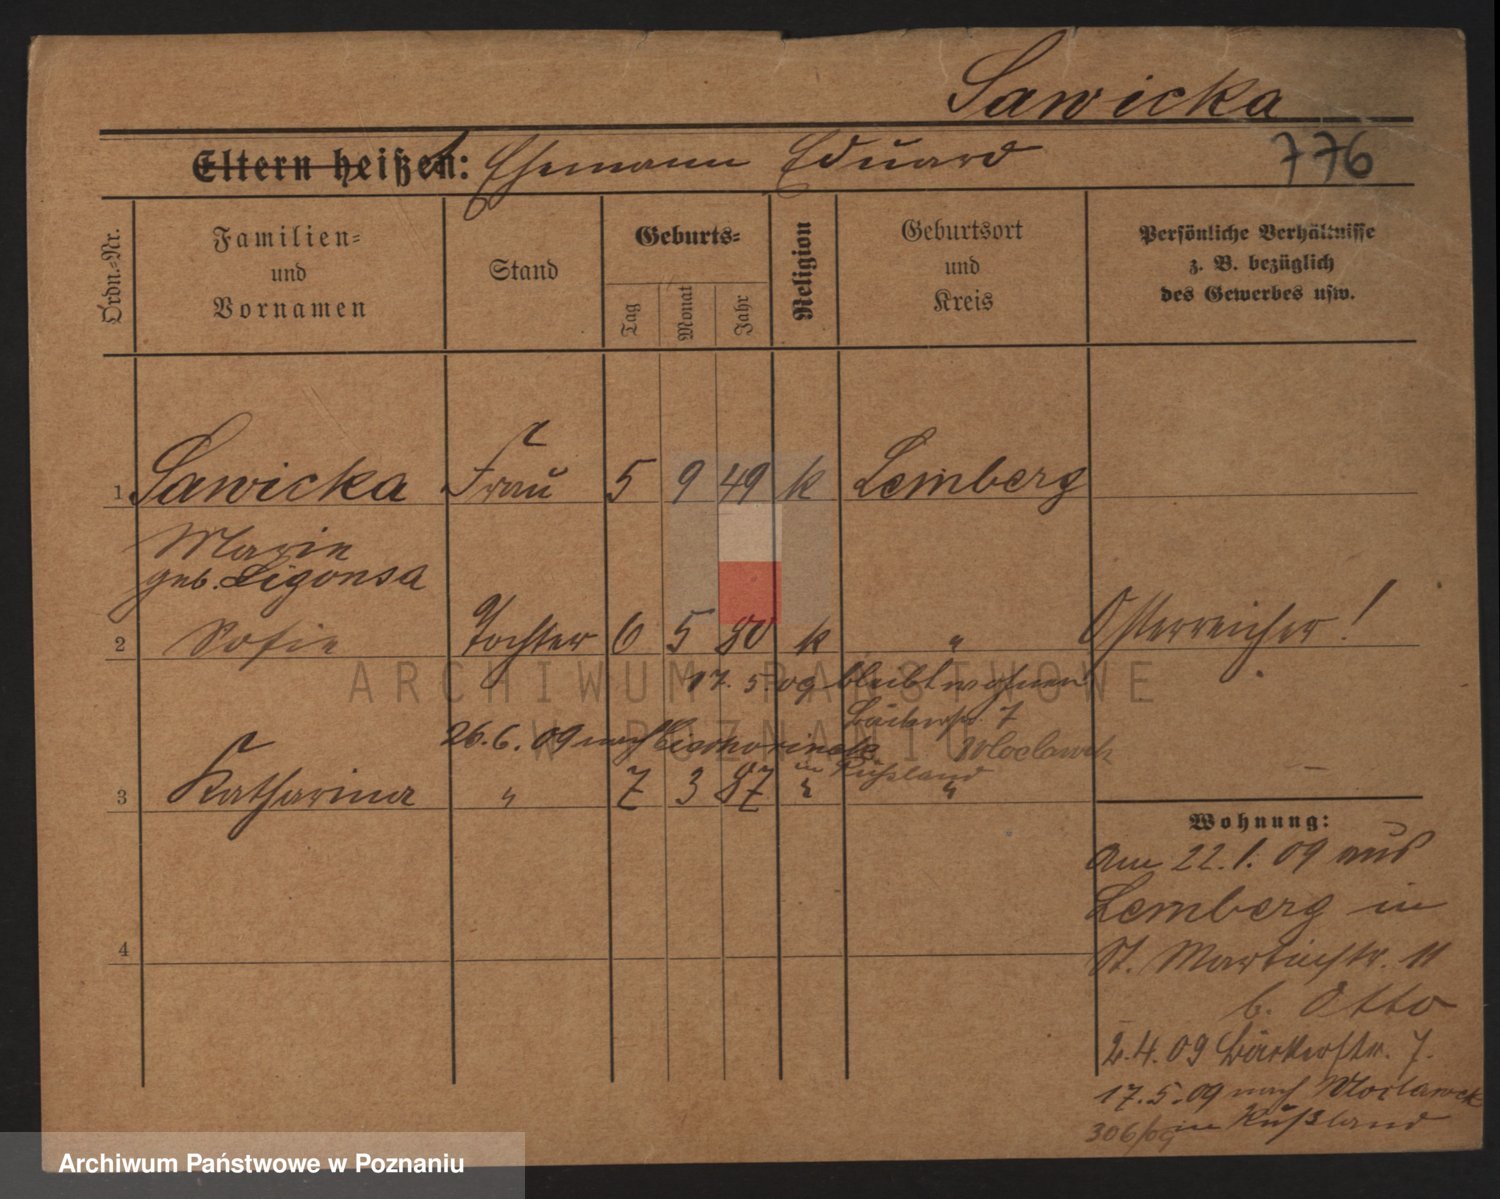 Sawicka
Eltern heißen: Ehemann Eduard
776
Ordn.-Nr.
Familien-
und
Vornamen
Stand
Geburts-
Tag
Monat
Jahr
Religion
Geburtsort
und
Kreis
Persönliche Verhältnisse
z. B. bezüglich
des Gewerbes usw.
1 Sawicka Frau 5 9 49 k Lemberg
Marie
geb. Ligonsa
2 Sofie Tochter 6 5 80 k " Österreicher!
17. 5. 09 bleibt wohnen
Bäckerstr. 7
26. 6. 09 nach Wloclawek
in Rußland
3 Katharina " 7 3 87 " "
4
Wohnung:
Am 22. 1. 09 aus
Lemberg in
St. Martinstr. 11
b. Otto
2. 4. 09 Bäckerstr. 7.
17. 5. 09 nach Wloclawek
306/09 in Rußland
ARCHIWUM PAŃSTWOWE
W POZNANIU
Archiwum Państwowe w Poznaniu